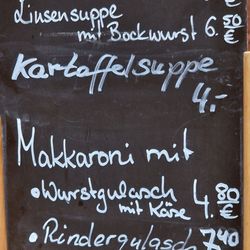 €
Linsensuppe
mit Bockwurst 6.50 €
Kartoffelsuppe
4.-
Makkaroni mit
• Wurstgulasch 4.80
mit Käse €
• Rindergulasch 7.40